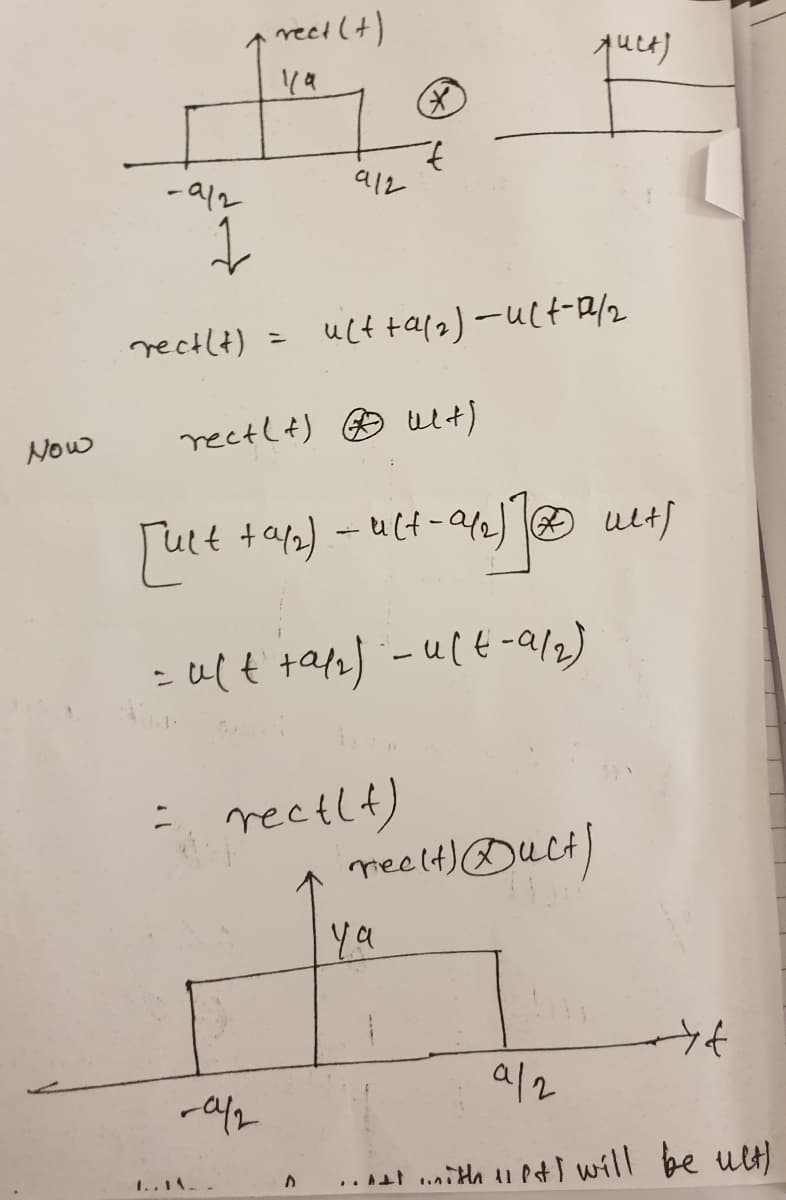 rect(t)
u(t)
1/a
⊛
t
-a/2
a/2
rect(t) = u(t+a/2) - u(t-a/2
Now rect(t) ⊛ u(t)
[u(t+a/2) - u(t-a/2)] ⊛ u(t)
= u(t+a/2) - u(t-a/2)
= rect(t)
rec(t) ⊛ u(t)
1/a
t
-a/2
a/2
with u(t) will be u(t)